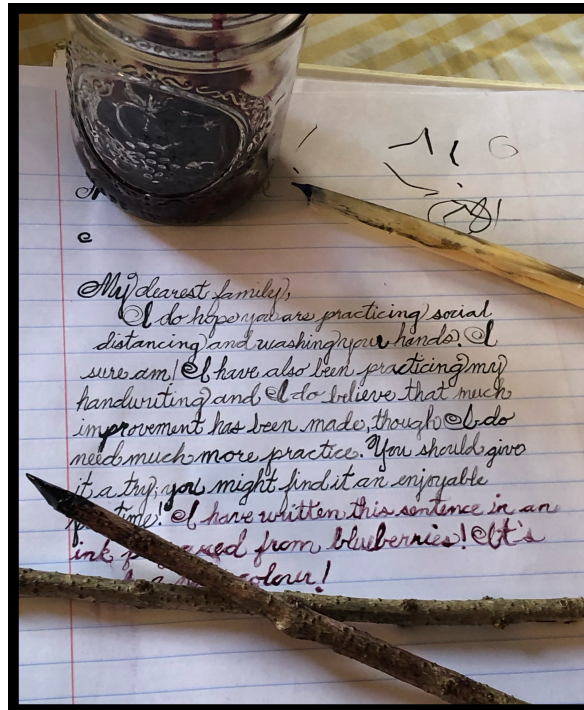 e
My dearest family,
I do hope you are practicing social
distancing and washing your hands. I
sure am! I have also been practicing my
handwriting and I do believe that much
improvement has been made, though I do
need much more practice. You should give
it a try, you might find it an enjoyable
time! I have written this sentence in an
ink from blueberries! It's
colour!